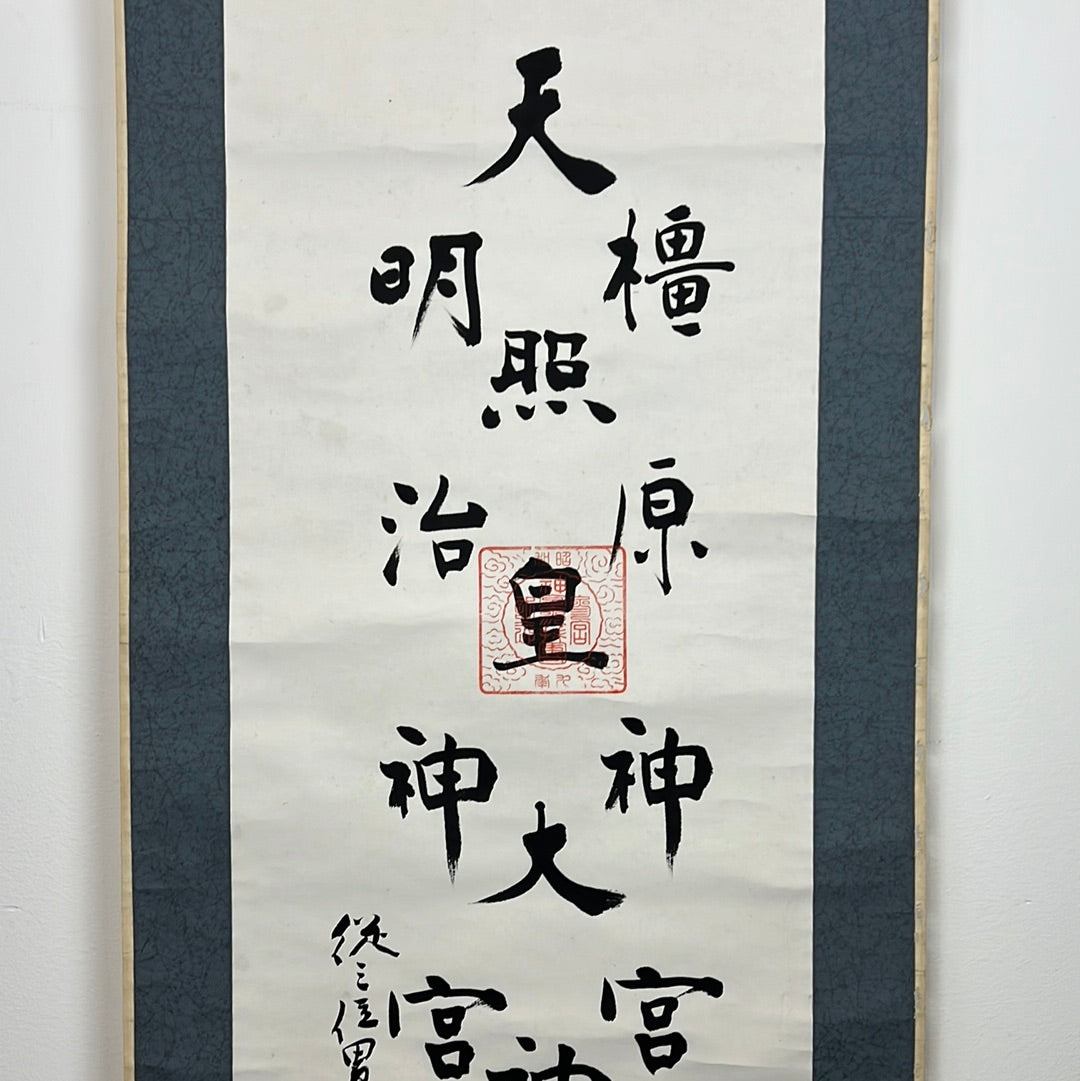 橿原神宮
天照皇大神
明治神宮
從三位男